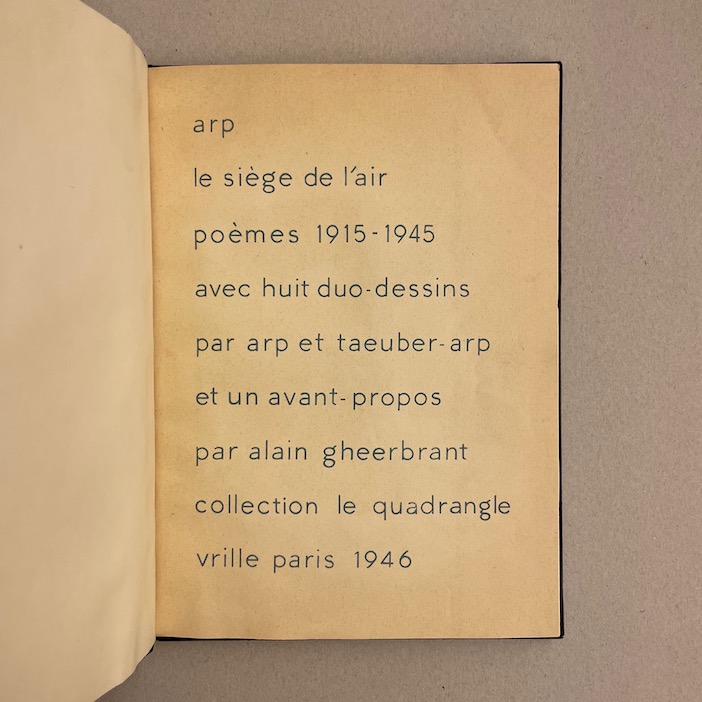 arp
le siège de l'air
poèmes 1915-1945
avec huit duo-dessins
par arp et taeuber-arp
et un avant-propos
par alain gheerbrant
collection le quadrangle
vrille paris 1946